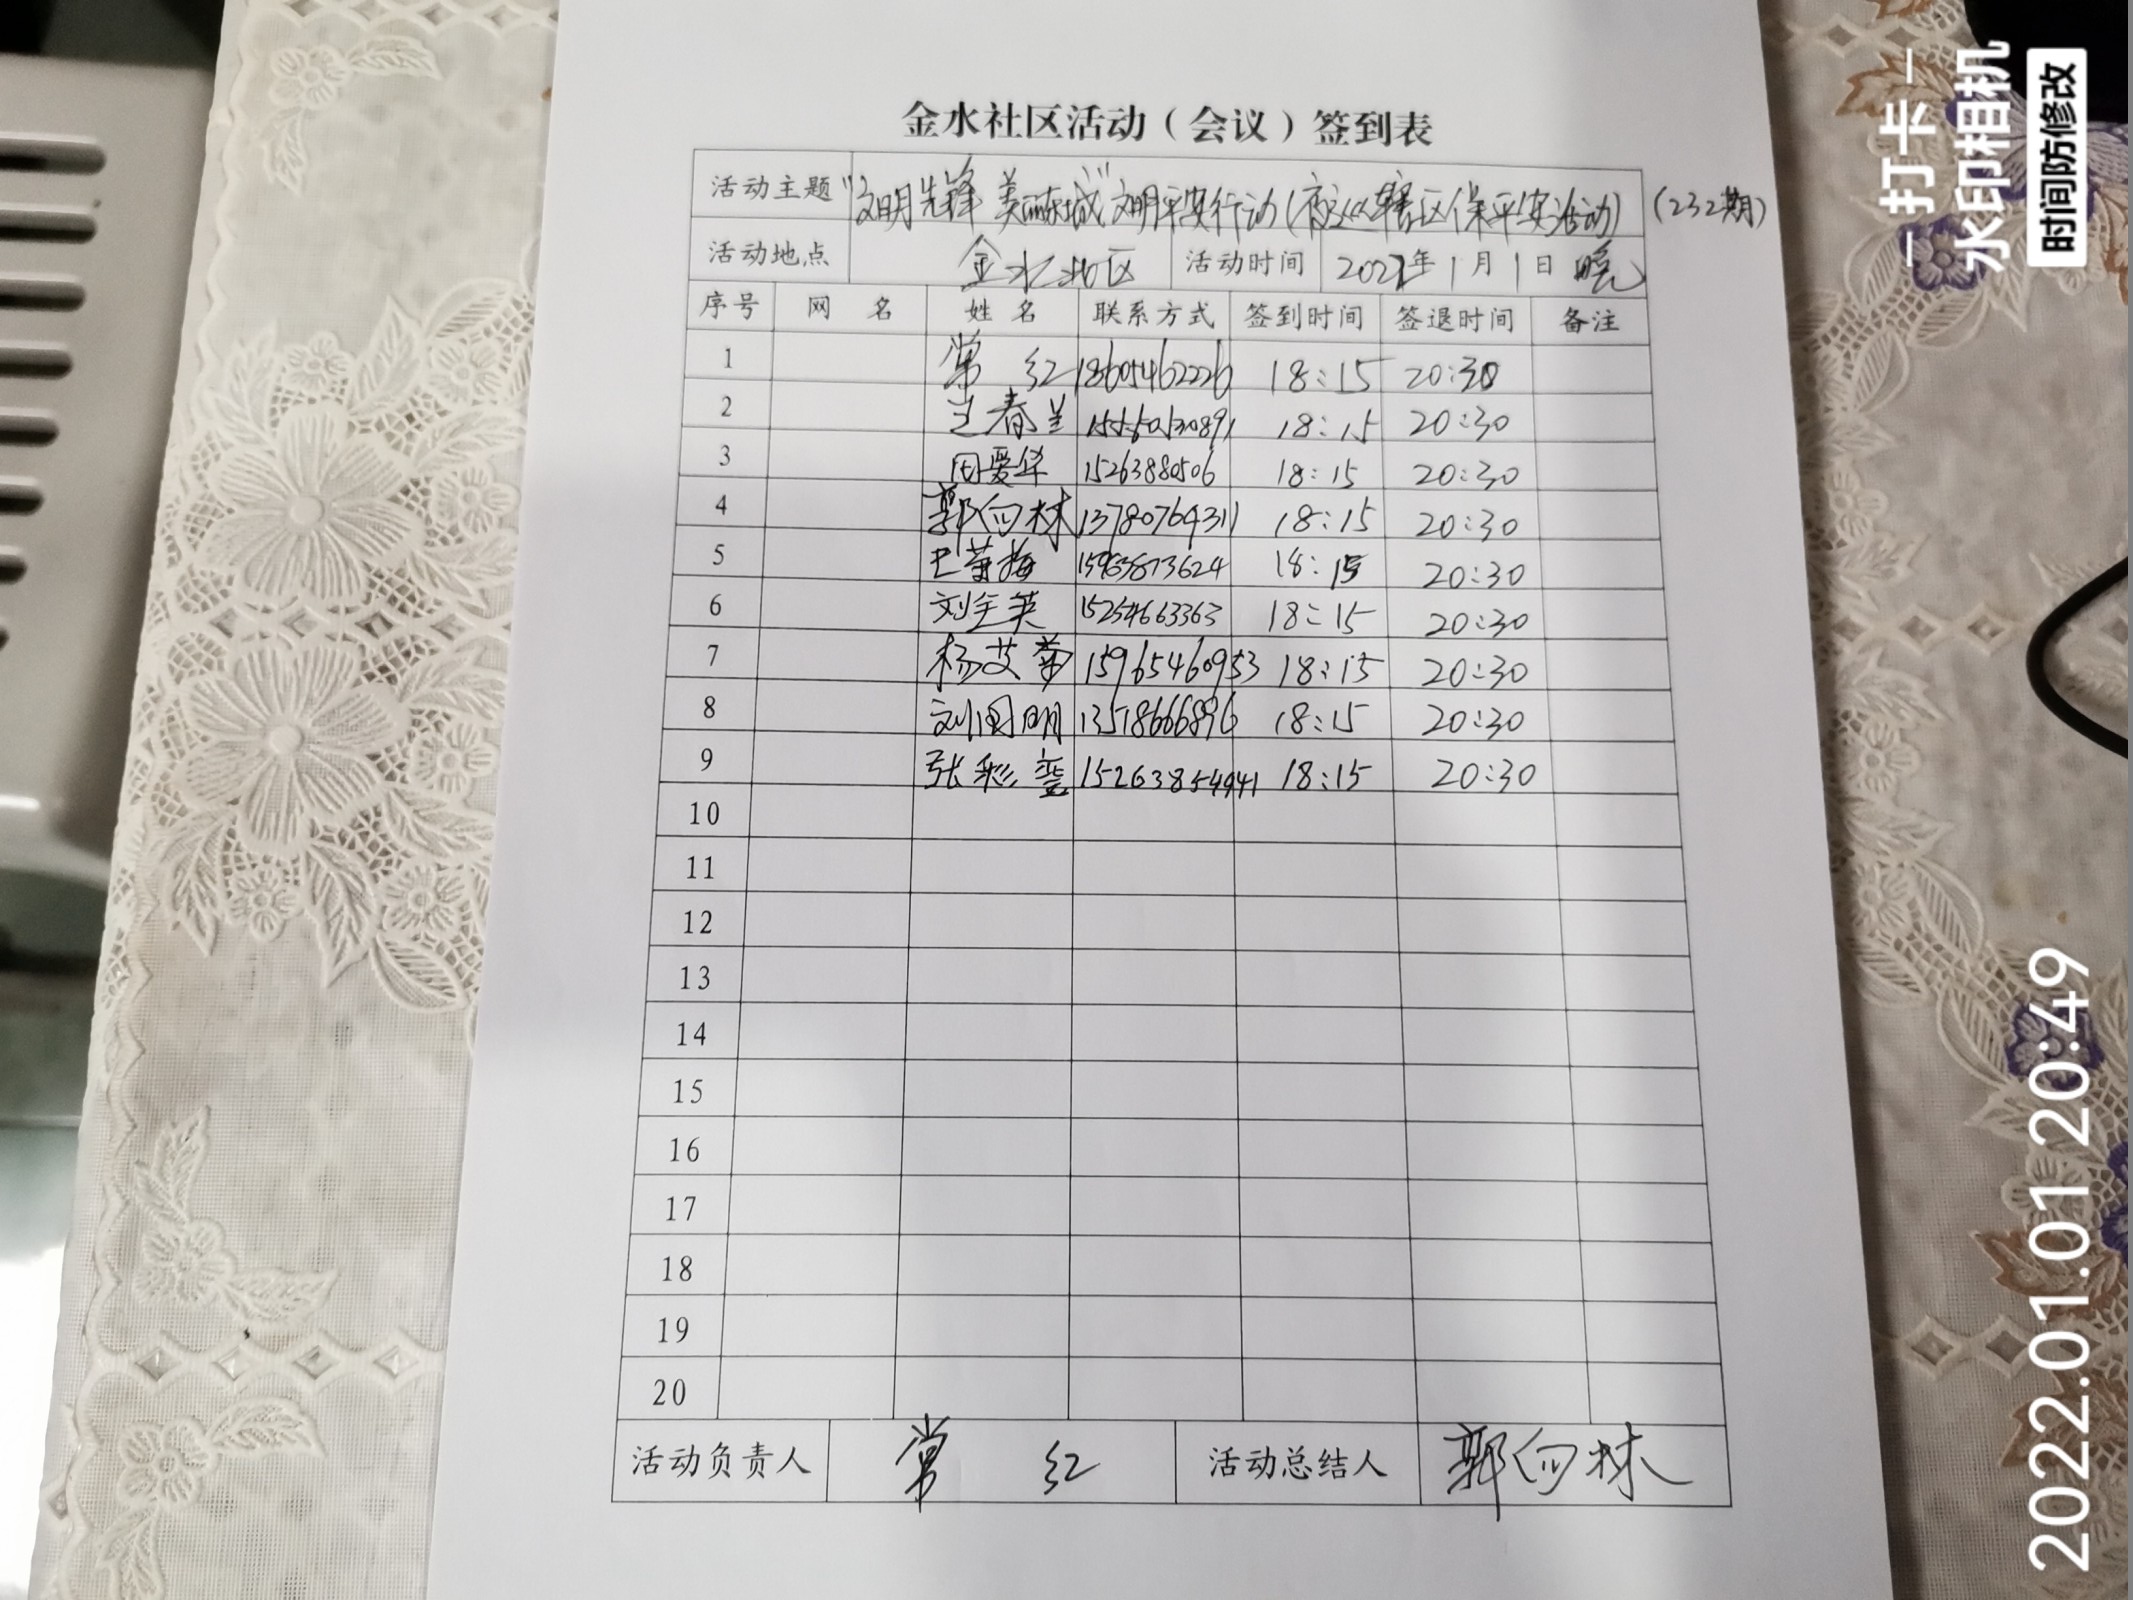 金水社区活动（会议）签到表
活动主题 “文明先锋 美丽东城”文明平安行动(夜巡辖区保平安活动) (232期)
活动地点 金水社区 活动时间 2022年1月1日 晚
序号 网 名 姓 名 联系方式 签到时间 签退时间 备注
1 常 红 18605462226 18:15 20:30
2 王春兰 18:15 20:30
3 周爱华 15263880506 18:15 20:30
4 郭向林 13780764311 18:15 20:30
5 巴菊梅 15965873624 18:15 20:30
6 刘全英 15254663363 18:15 20:30
7 杨艾菊 15965460953 18:15 20:30
8 刘国明 13518666896 18:15 20:30
9 张彩 15263854941 18:15 20:30
10
11
12
13
14
15
16
17
18
19
20
活动负责人 常 红 活动总结人 郭向林
打卡
水印相机
时间防修改
2022.01.01 20:49